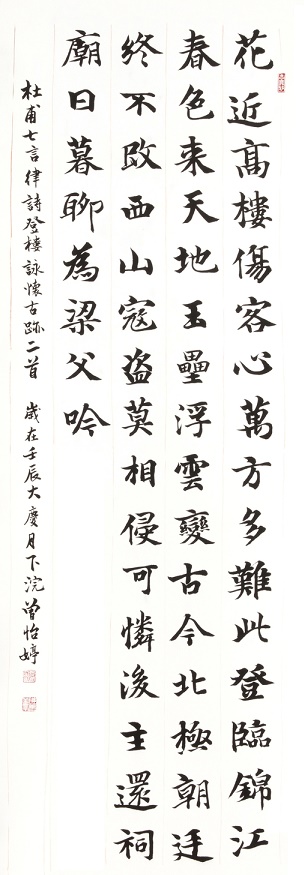 花近高樓傷客心萬方多難此登臨錦江
春色來天地玉壘浮雲變古今北極朝廷
終不改西山寇盗莫相侵可憐後主還祠
廟日暮聊為梁父吟
杜甫七言律詩登樓詠懷古跡二首 歲在壬辰大慶月下浣曾怡婷